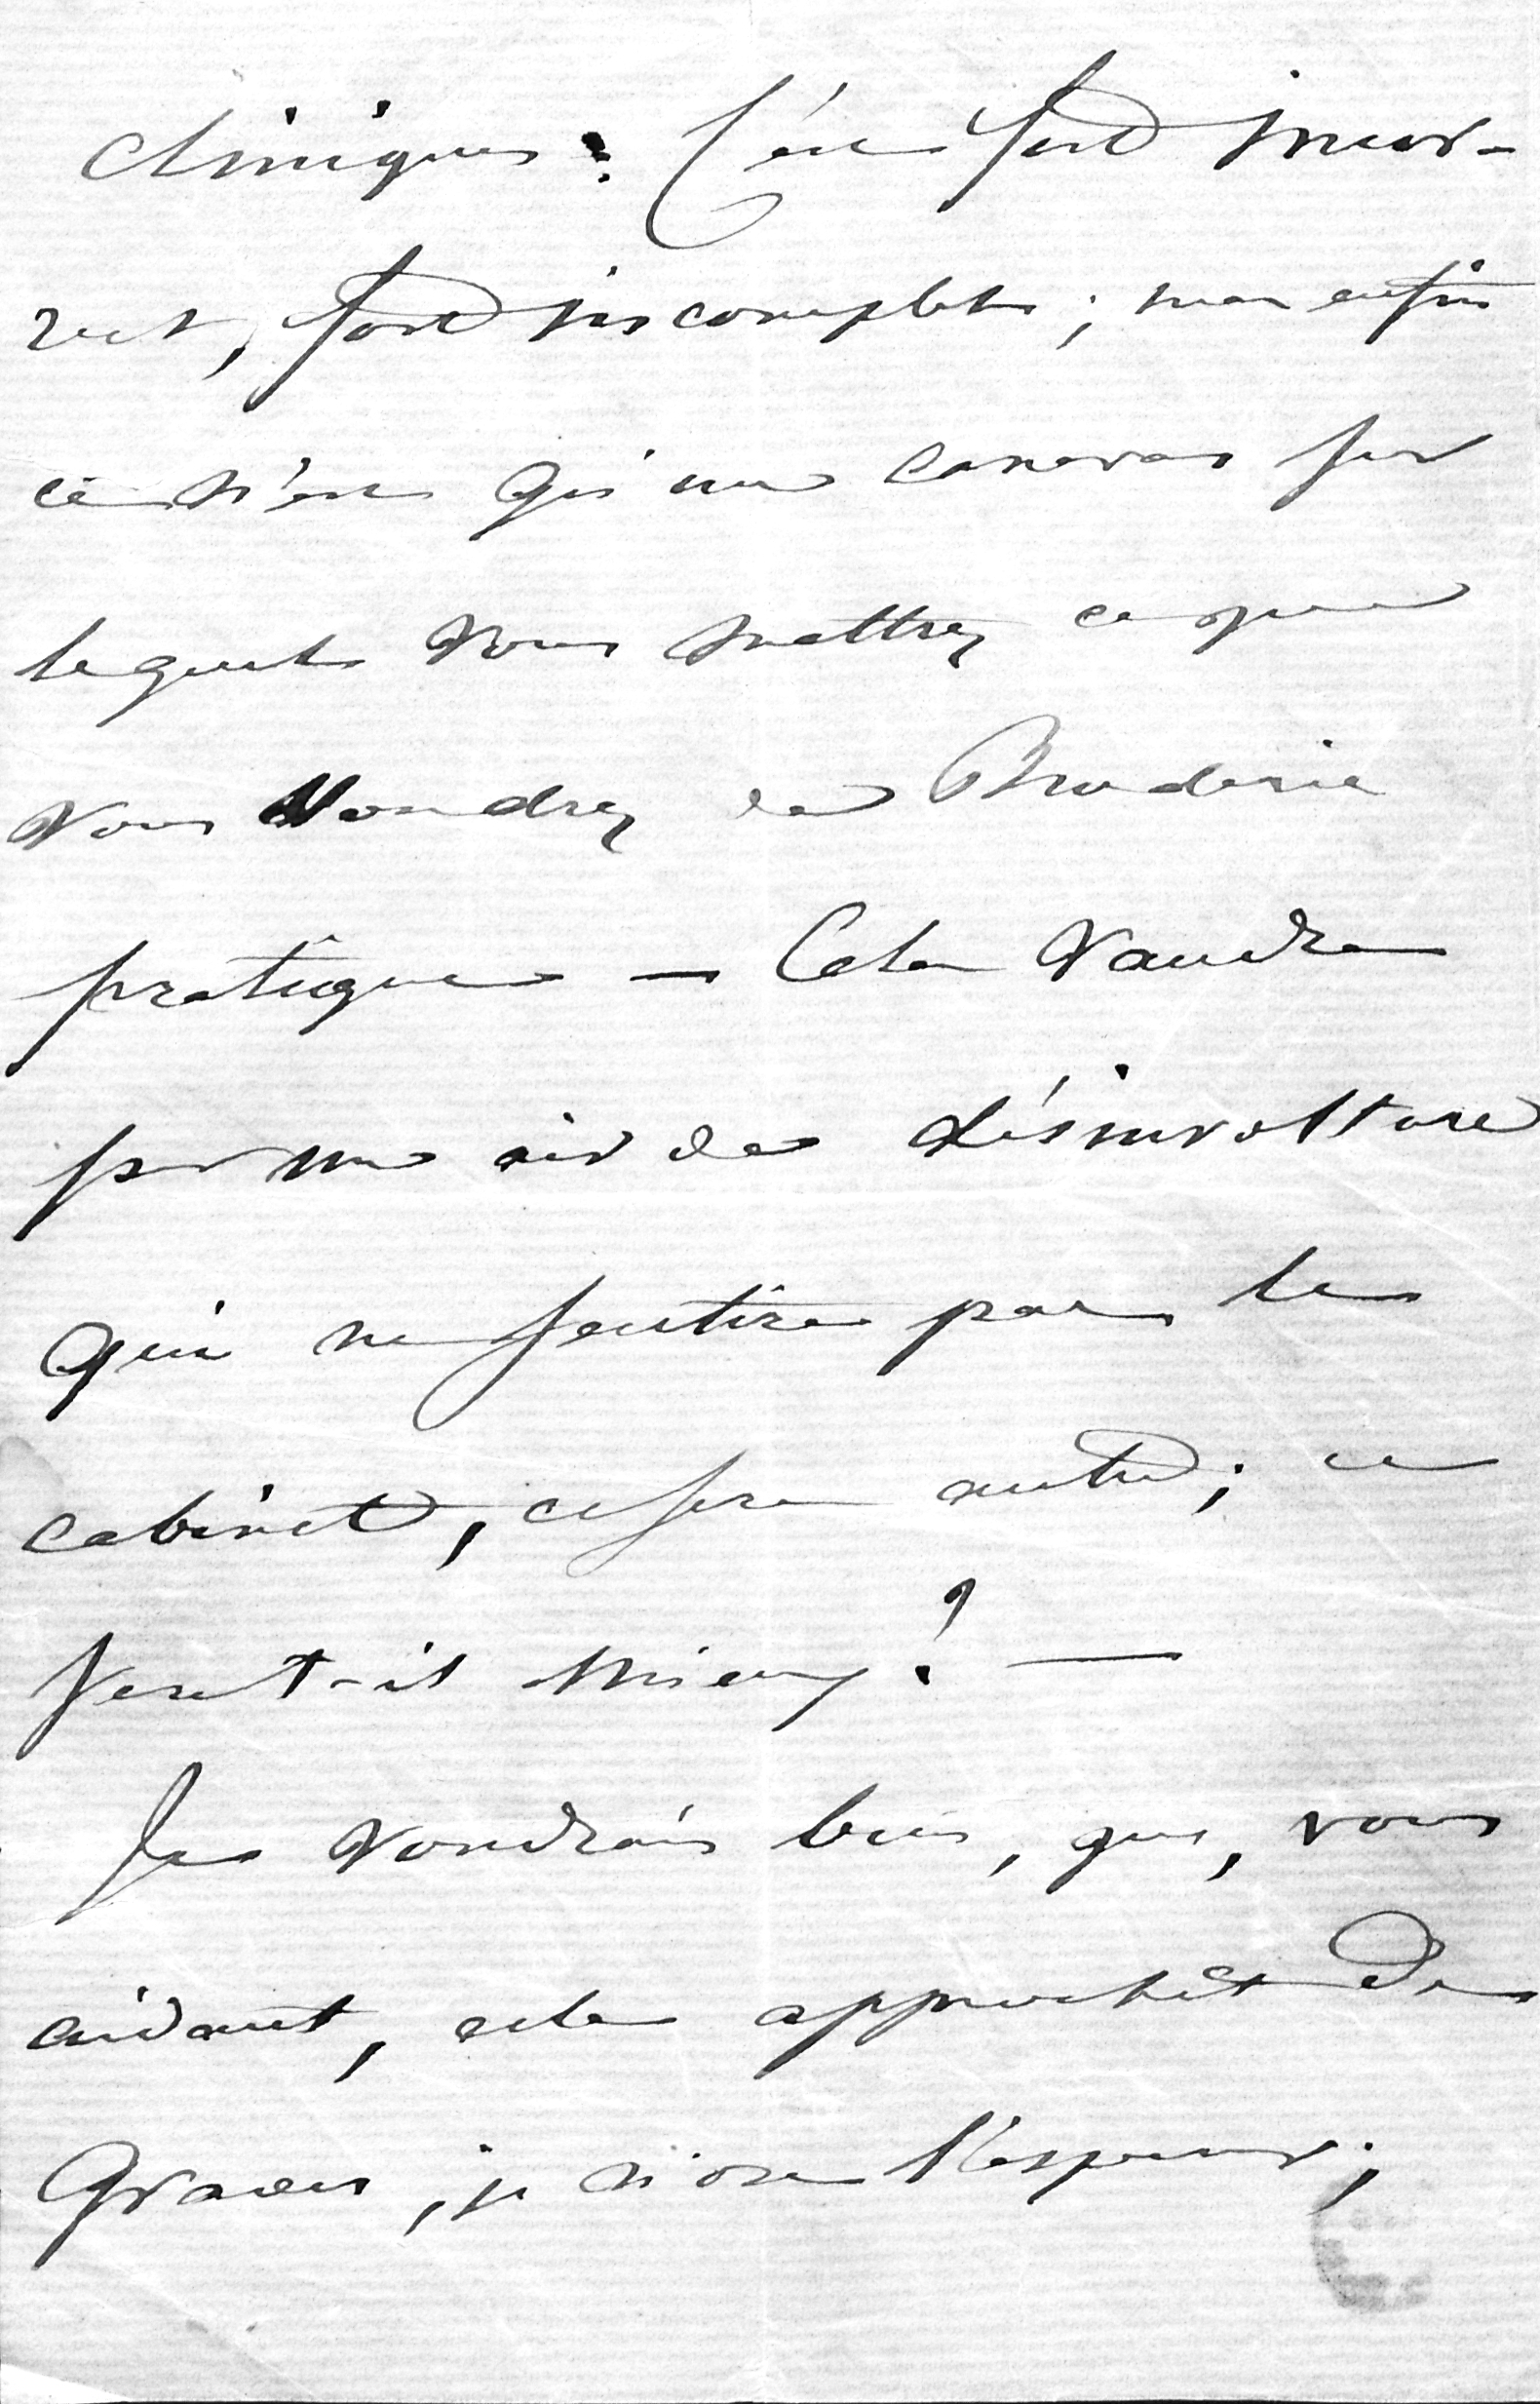 cliniques : C'est fort incor-
rect, fort incomplet ; mais enfin
ce n'est qu'un canevas sur
lequel vous mettrez ce que
vous voudrez de Broderie
pratique — Cela vaudra
par un air de désinvolture
qui ne sentira pas le
cabinet, ce sera autre ; ce
sera t-il mieux ? —
Je voudrais bien, que, vous
aidant, cela approchât de
Graves, je n'ose l'espérer ;